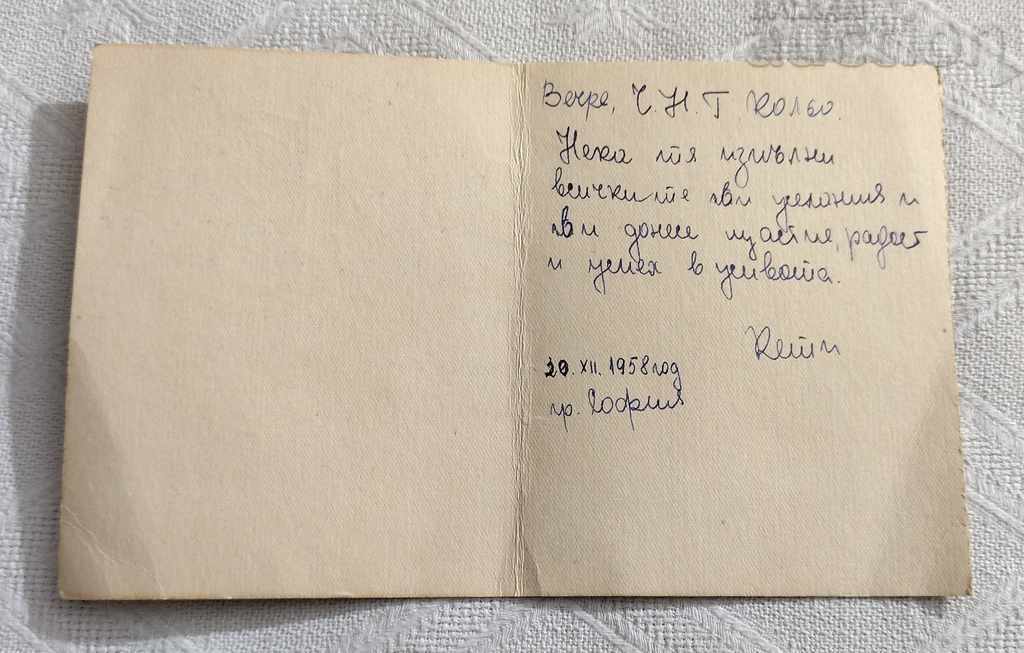 Вечре, Ч.Н.Г. Кольо.
Нека тя изпълни
всичките ви желания и
ви донесе щастие, радост
и успех в живота.
Кети
20. XII. 1958 год
гр. София